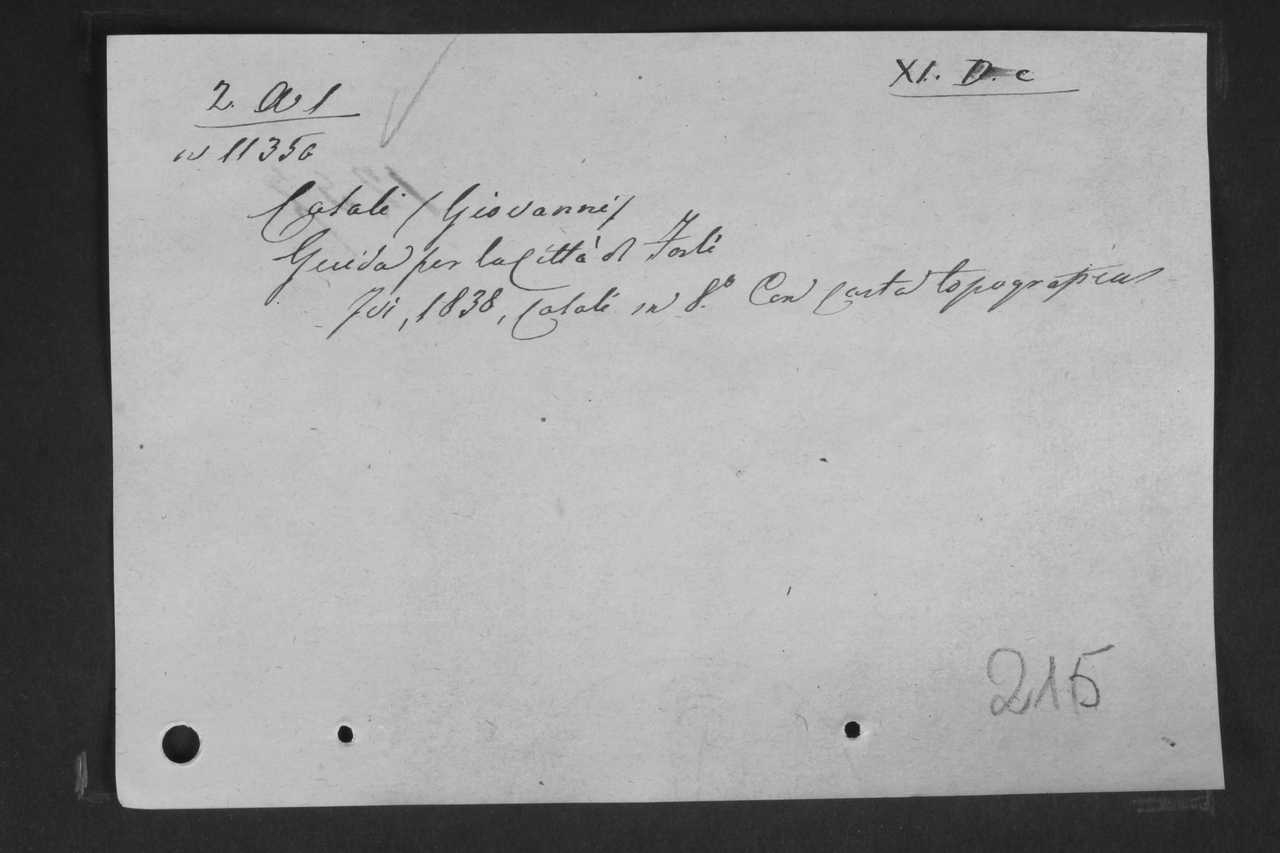 2. A 1
XI. D. c
n 11350
Casali / Giovanni /
Guida per la Città di Forlì
Ivi, 1838, Casali in 8.º Con carta topografica
215